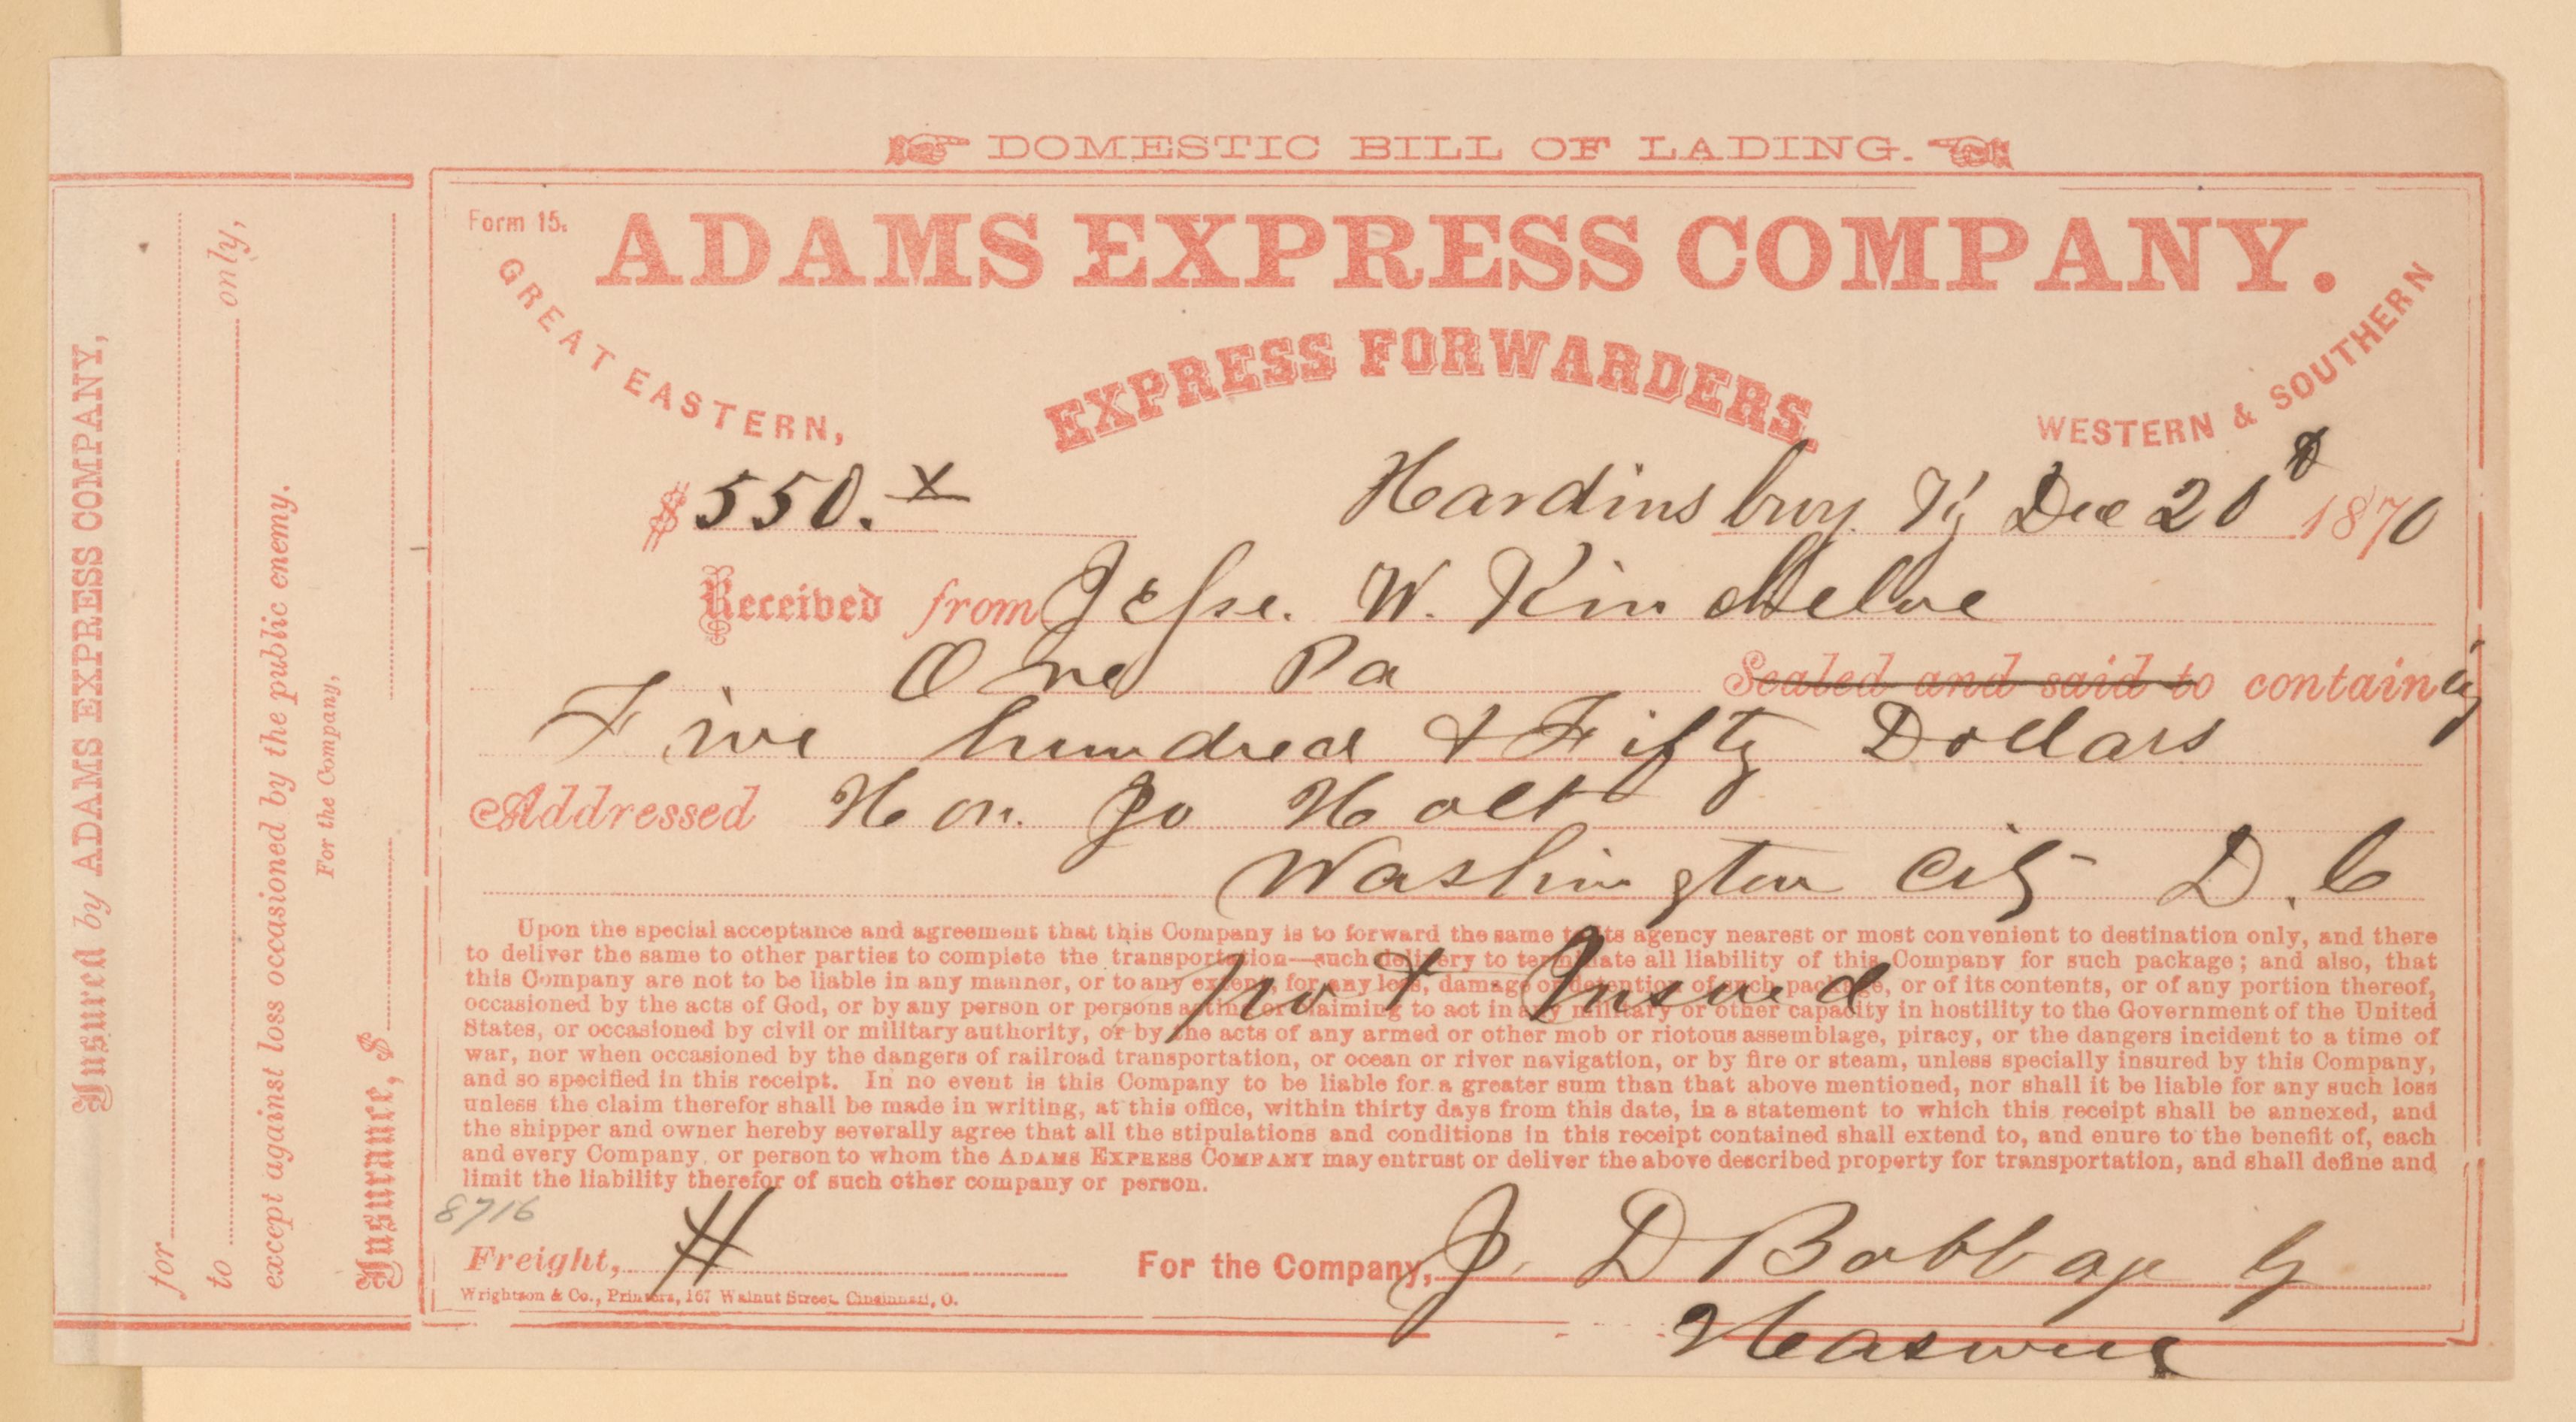 DOMESTIC BILL OF LADING.
Form 15.
ADAMS EXPRESS COMPANY.
GREAT EASTERN,
EXPRESS FORWARDERS
WESTERN & SOUTHERN
$ 550. x
Hardinsburg Ky Dec 20 1870
Received from Jesse. W. Kincheloe
One Pa Sealed and said to containing
Five hundred & Fifty Dollars
Addressed Hon. Jo Holt
Washington City D. C
Upon the special acceptance and agreement that this Company is to forward the same to its agency nearest or most convenient to destination only, and there
to deliver the same to other parties to complete the transportation—such delivery to terminate all liability of this Company for such package; and also, that
this Company are not to be liable in any manner, or to any extent, for any loss, damage or detention of such package, or of its contents, or of any portion thereof,
occasioned by the acts of God, or by any person or persons acting or claiming to act in any military or other capacity in hostility to the Government of the United
States, or occasioned by civil or military authority, or by the acts of any armed or other mob or riotous assemblage, piracy, or the dangers incident to a time of
war, nor when occasioned by the dangers of railroad transportation, or ocean or river navigation, or by fire or steam, unless specially insured by this Company,
and so specified in this receipt. In no event is this Company to be liable for a greater sum than that above mentioned, nor shall it be liable for any such loss
unless the claim therefor shall be made in writing, at this office, within thirty days from this date, in a statement to which this receipt shall be annexed, and
the shipper and owner hereby severally agree that all the stipulations and conditions in this receipt contained shall extend to, and enure to the benefit of, each
and every Company, or person to whom the ADAMS EXPRESS COMPANY may entrust or deliver the above described property for transportation, and shall define and
limit the liability therefor of such other company or person.
not Insured
8716
Freight,
For the Company, J. D Babbage
Wrightson & Co., Printers, 167 Walnut Street, Cincinnati, O.
Insured by ADAMS EXPRESS COMPANY,
for
to only,
except against loss occasioned by the public enemy.
For the Company,
Insurance, $